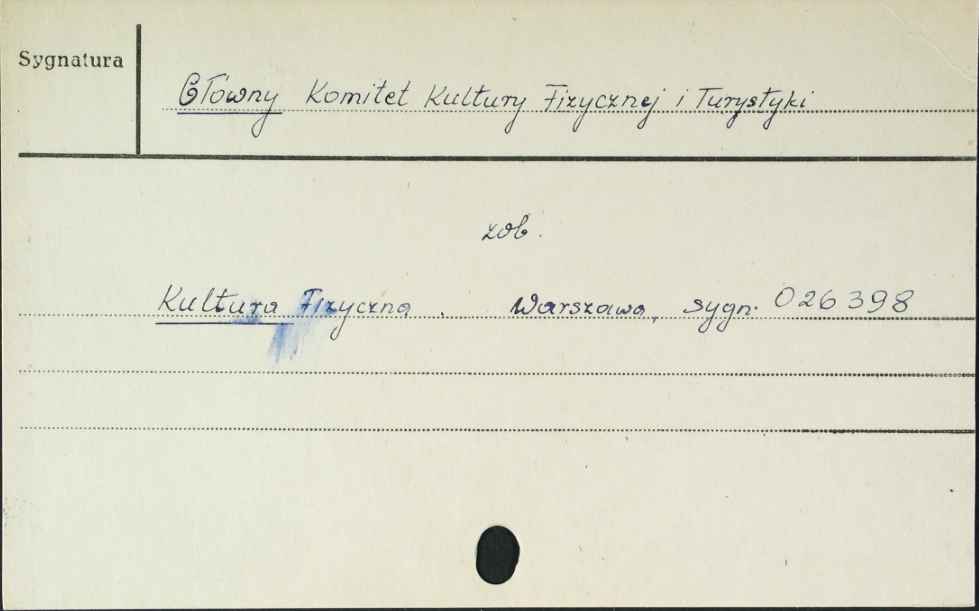 Sygnatura
Główny Komitet Kultury Fizycznej i Turystyki
zob.
Kultura Fizyczna. Warszawa, sygn. 026398